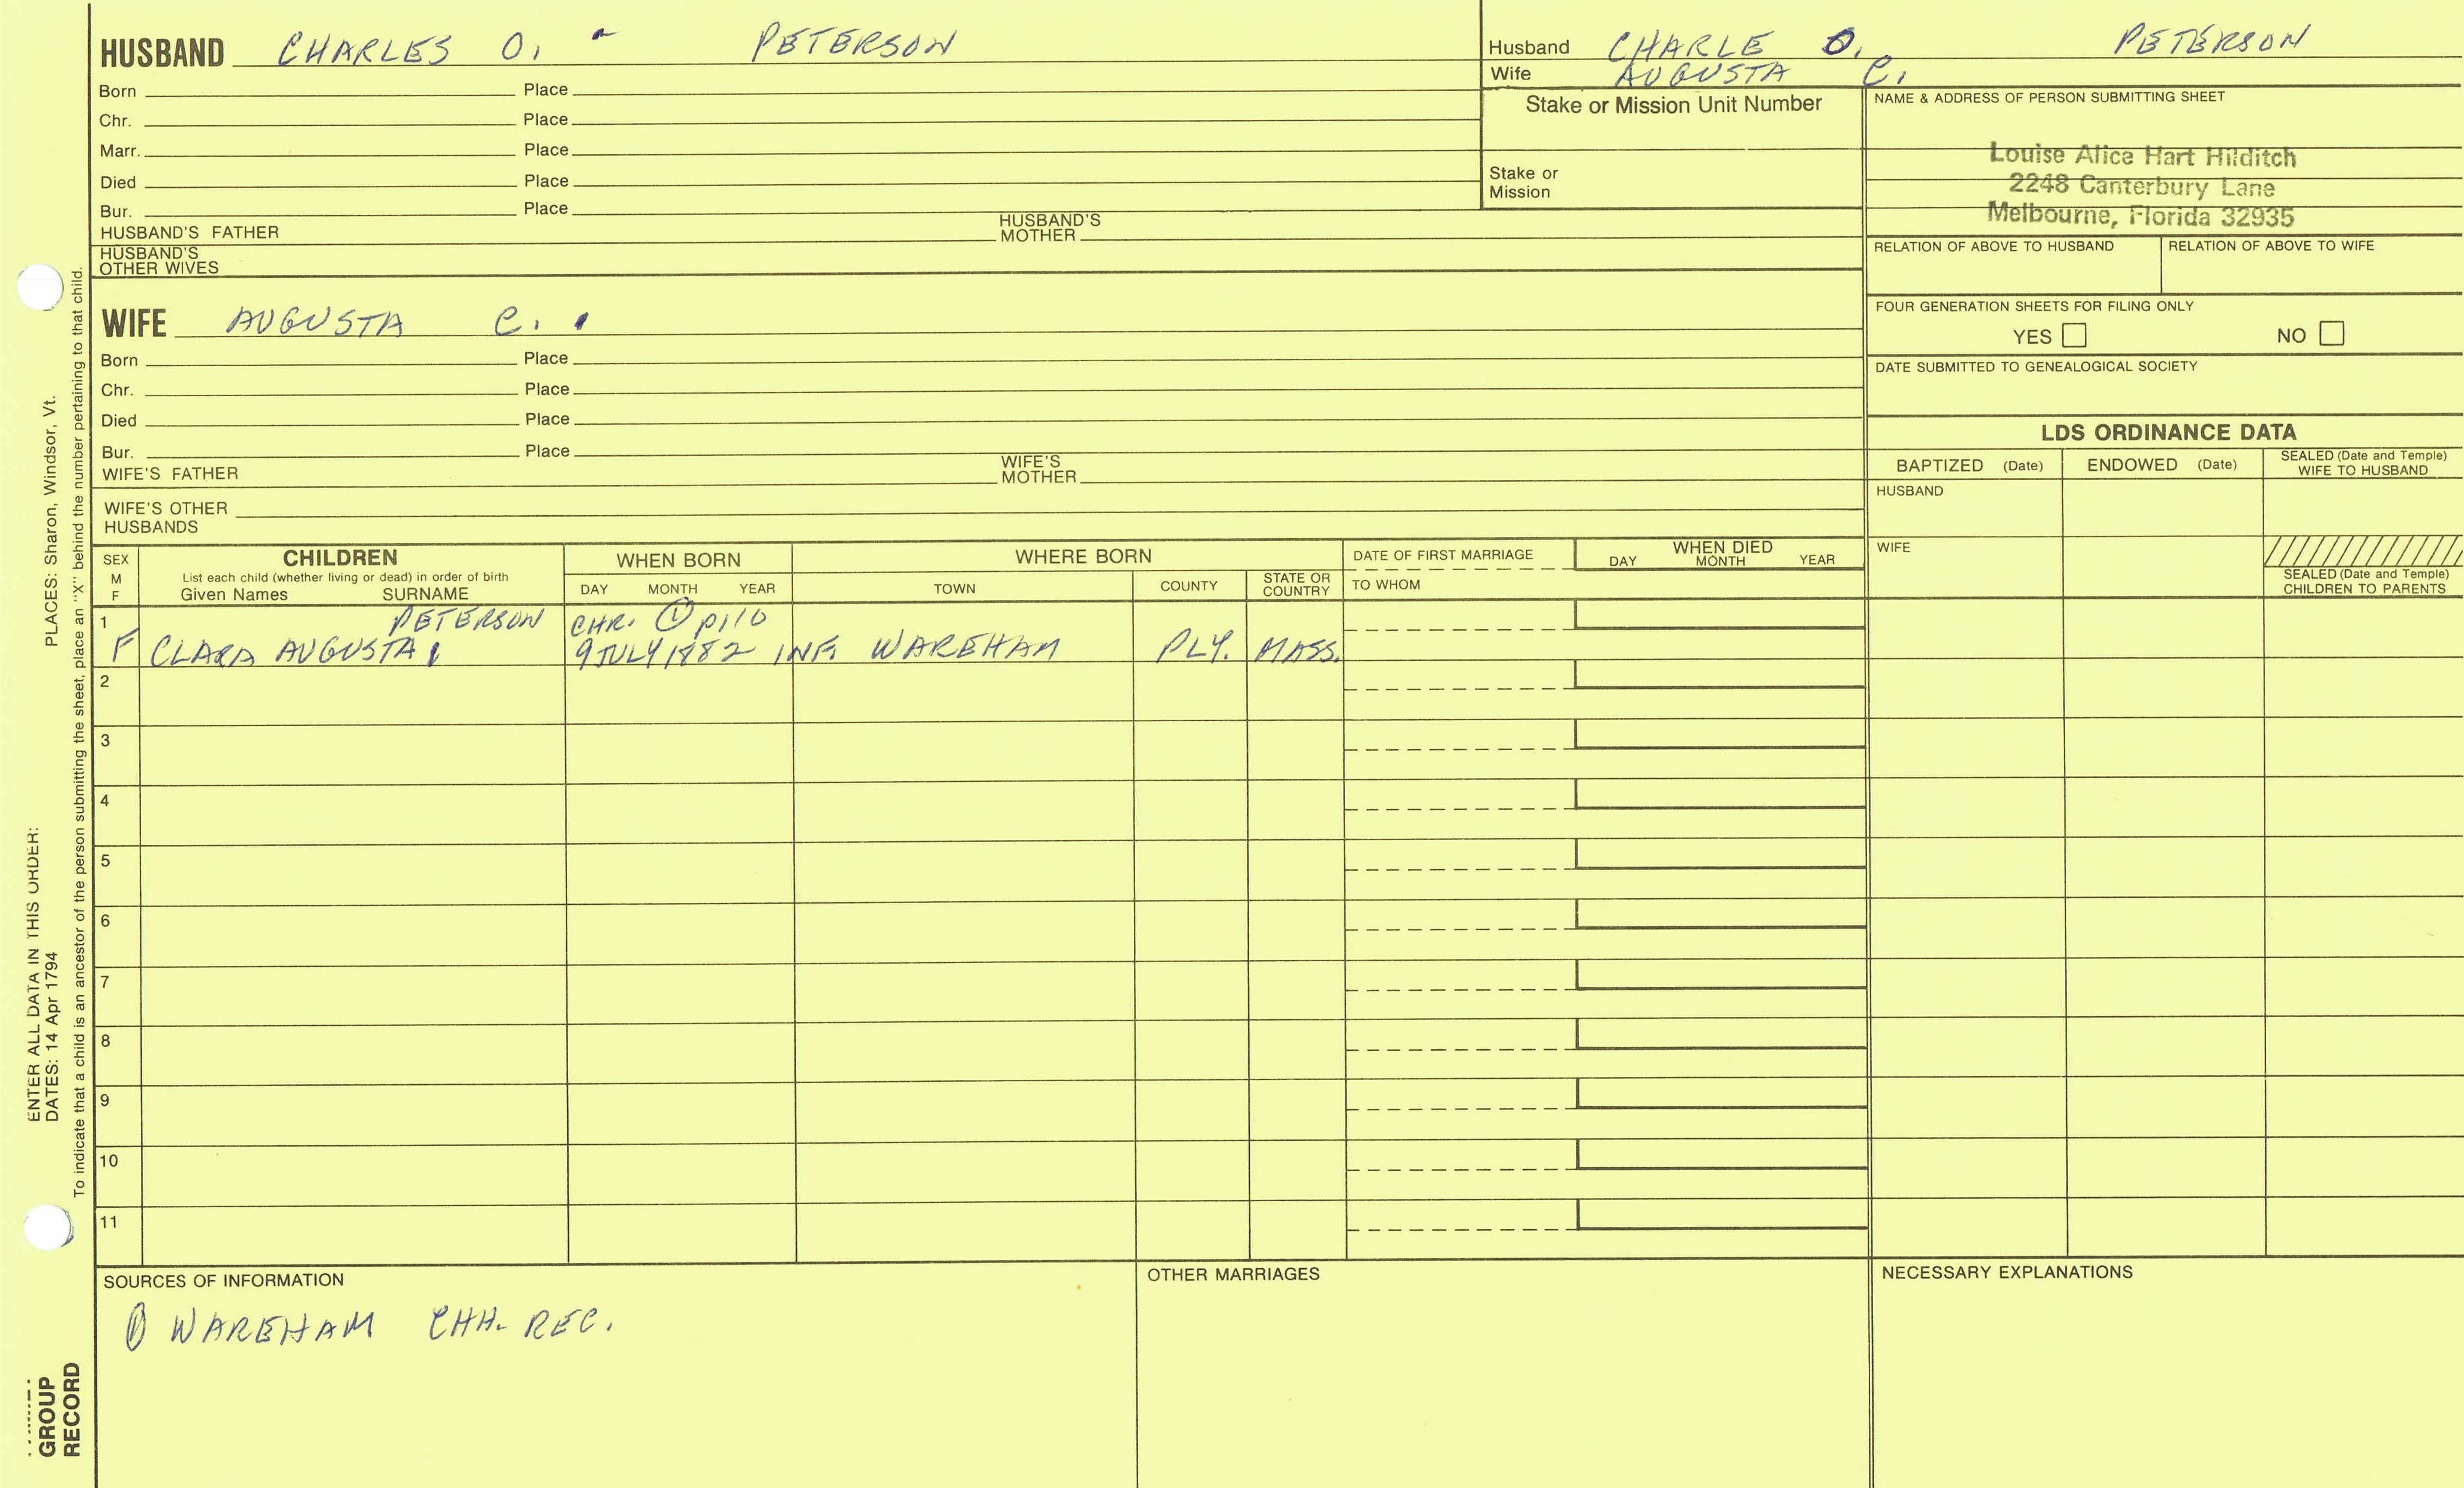 HUSBAND CHARLES O. - PETERSON
Born Place
Chr. Place
Marr. Place
Died Place
Bur. Place
HUSBAND'S FATHER HUSBAND'S MOTHER
HUSBAND'S OTHER WIVES
Husband CHARLE O. PETERSON
Wife AUGUSTA C.
Stake or Mission Unit Number
Stake or Mission
NAME & ADDRESS OF PERSON SUBMITTING SHEET
Louise Alice Hart Hilditch
2248 Canterbury Lane
Melbourne, Florida 32935
RELATION OF ABOVE TO HUSBAND RELATION OF ABOVE TO WIFE
FOUR GENERATION SHEETS FOR FILING ONLY
YES NO
DATE SUBMITTED TO GENEALOGICAL SOCIETY
WIFE AUGUSTA C.
Born Place
Chr. Place
Died Place
Bur. Place
WIFE'S FATHER WIFE'S MOTHER
WIFE'S OTHER HUSBANDS
LDS ORDINANCE DATA
BAPTIZED (Date) ENDOWED (Date) SEALED (Date and Temple) WIFE TO HUSBAND
HUSBAND
WIFE
SEALED (Date and Temple) CHILDREN TO PARENTS
SEX M F
CHILDREN
List each child (whether living or dead) in order of birth
Given Names SURNAME
WHEN BORN
DAY MONTH YEAR
WHERE BORN
TOWN COUNTY STATE OR COUNTRY
DATE OF FIRST MARRIAGE
TO WHOM
WHEN DIED
DAY MONTH YEAR
1 PETERSON CHR. ① p110
F CLARA AUGUSTA 9 JULY 1882 INF. WAREHAM PLY. MASS.
2
3
4
5
6
7
8
9
10
11
SOURCES OF INFORMATION
① WAREHAM CHH. REC.
OTHER MARRIAGES
NECESSARY EXPLANATIONS
ENTER ALL DATA IN THIS ORDER:
DATES: 14 Apr 1794 PLACES: Sharon, Windsor, Vt.
To indicate that a child is an ancestor of the person submitting the sheet, place an "X" behind the number pertaining to that child.
GROUP
RECORD